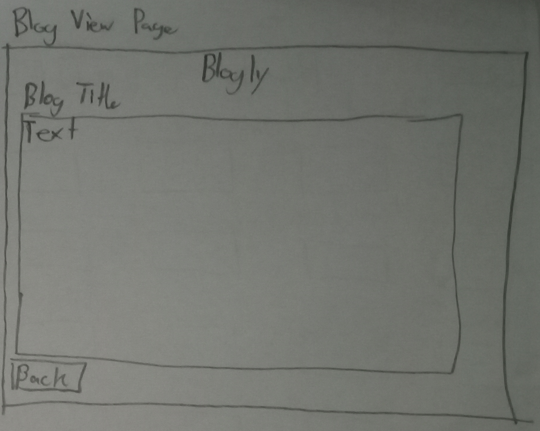 Blog View Page
Blogly
Blog Title
Text
Back